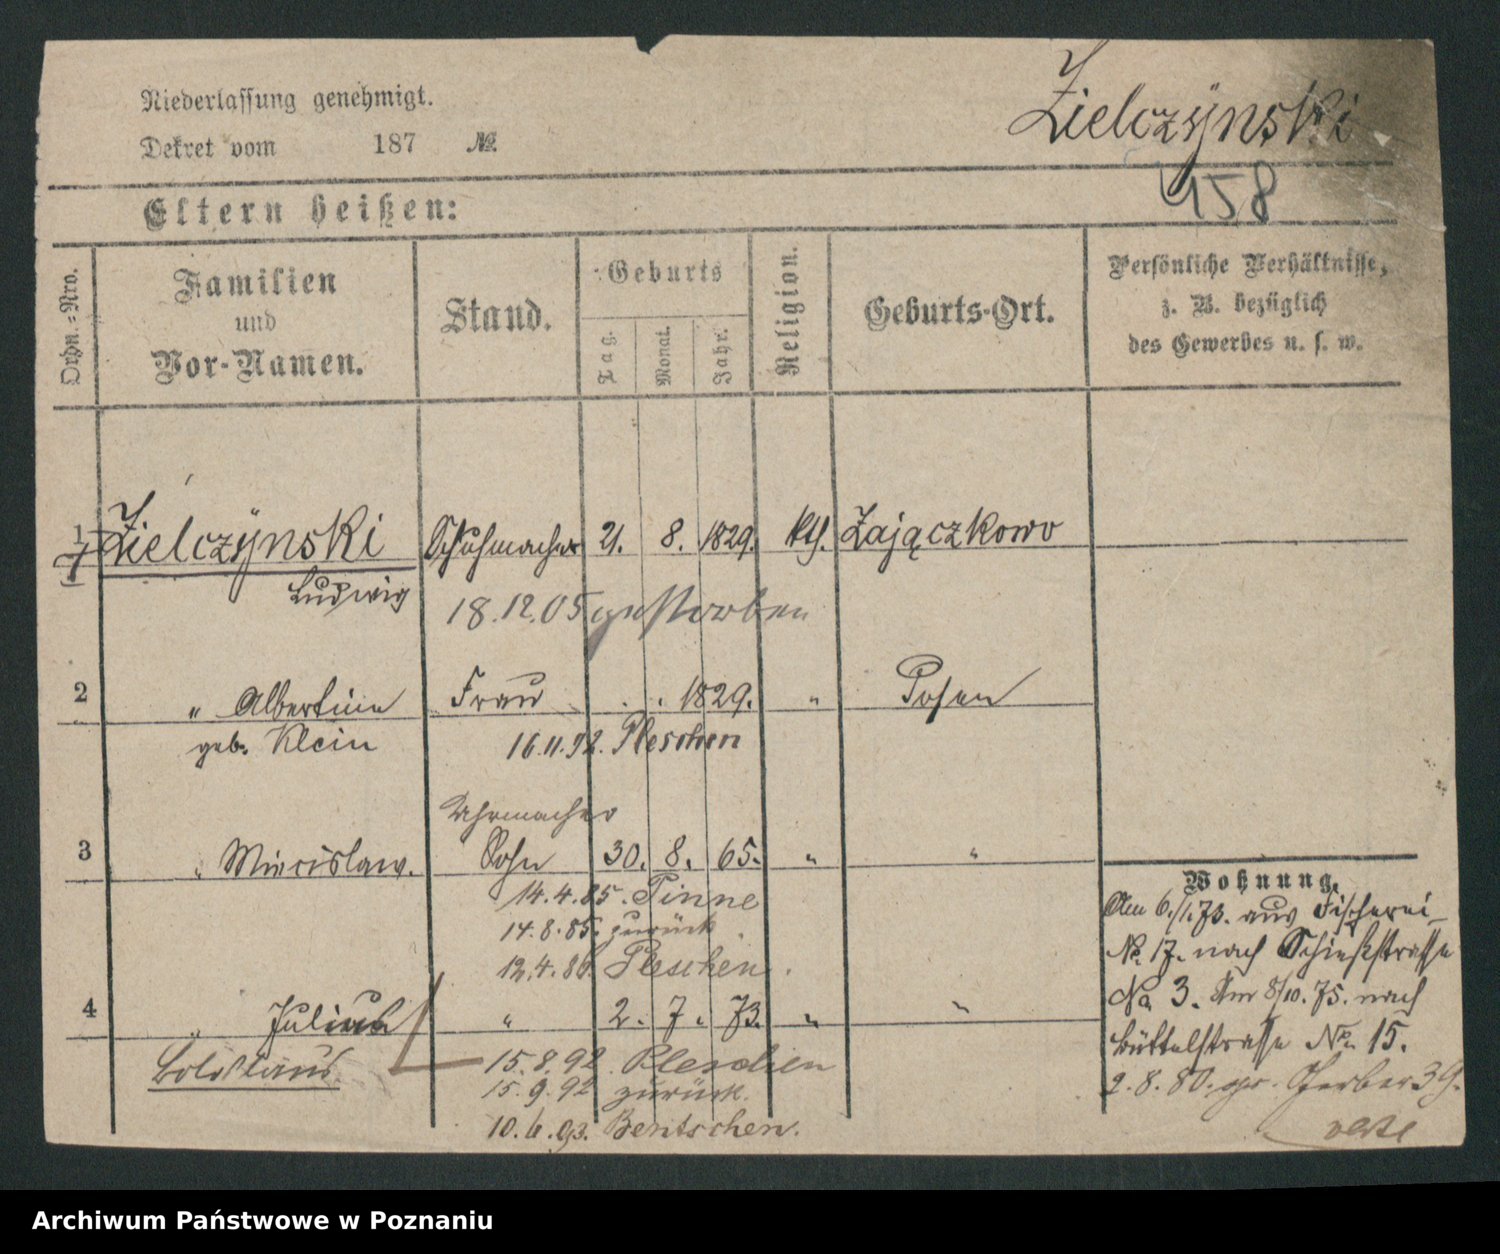 Niederlassung genehmigt.
Dekret vom 187 №
Zielczÿnski
458
Eltern heißen:
Ordn.-Nro.
Familien und Vor-Namen.
Stand.
Geburts
Tag.
Monat.
Jahr.
Religion.
Geburts-Ort.
Persönliche Verhältnisse,
z. B. bezüglich
des Gewerbes u. s. w.
1 Zielczÿnski Schuhmacher 21. 8. 1829. kth. Zajączkowo
Ludwig
18.12.05 gestorben
2 " Albertine Frau . . 1829. " Posen
geb. Klein 16.11.92. Pleschen
Uhrmacher
3 " Miecislaw. Sohn 30. 8. 65. " "
14.4.85. Pinne
14.8.85. zurück
12.4.86. Pleschen.
4 " Julian " 2. 7. 73. " "
Boleslaus 15.8.92. Pleschen
15.9.92 zurück.
10.6.93. Bentschen.
Wohnung.
Am 6./1.73. aus Fischerei
No. 17. nach Schießstrasse
No 3. Am 8/10. 75. nach
Büttelstrasse No. 15.
2.8.80. gr. Gerber 39.
verte
Archiwum Państwowe w Poznaniu